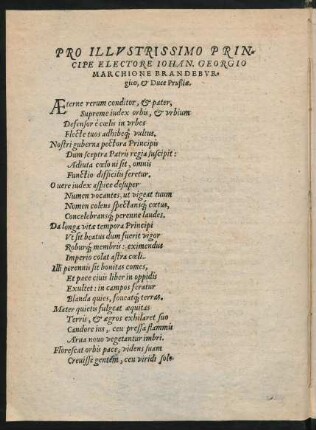 PRO ILLVSTRISSIMO PRIN-
CIPE ELECTORE IOHAN. GEORGIO
MARCHIONE BRANDEBVR-
gico, & Duce Prußiæ.
ÆTerne rerum conditor, & pater,
Supreme iudex orbis, & vrbium
Defensor è cœlo in vrbes
Flecte tuos adhibeq́; vultus.
Nostri guberna pectora Principis
Dum sceptra Patris regia suscipit:
Adiuta cœlo ni sit, omnis
Functio difficilis feretur.
O vere iudex aspice desuper
Numen vocantes, ut vigeat tuum
Nomen colens spectansq́; cœtus,
Concelebransq́; perenne laudes.
Da longa vitæ tempora Principi
Vt sit beatus dum fuerit vigor
Roburq́; membris: eximendus
Imperio colat astra cœli.
Illi perennis sit bonitas comes,
Et pace ciuis liber in oppidis
Exultet: in campos feratur
Blanda quies, foueatq́; terras.
Mater quietis fulgeat æquitas
Terris, & ægros exhilaret suo
Candore ius, ceu pressa flammis
Arua nouo vegetantur imbri.
Florescat orbis pace, videns suam
Creuisse gentem, ceu viridi solo